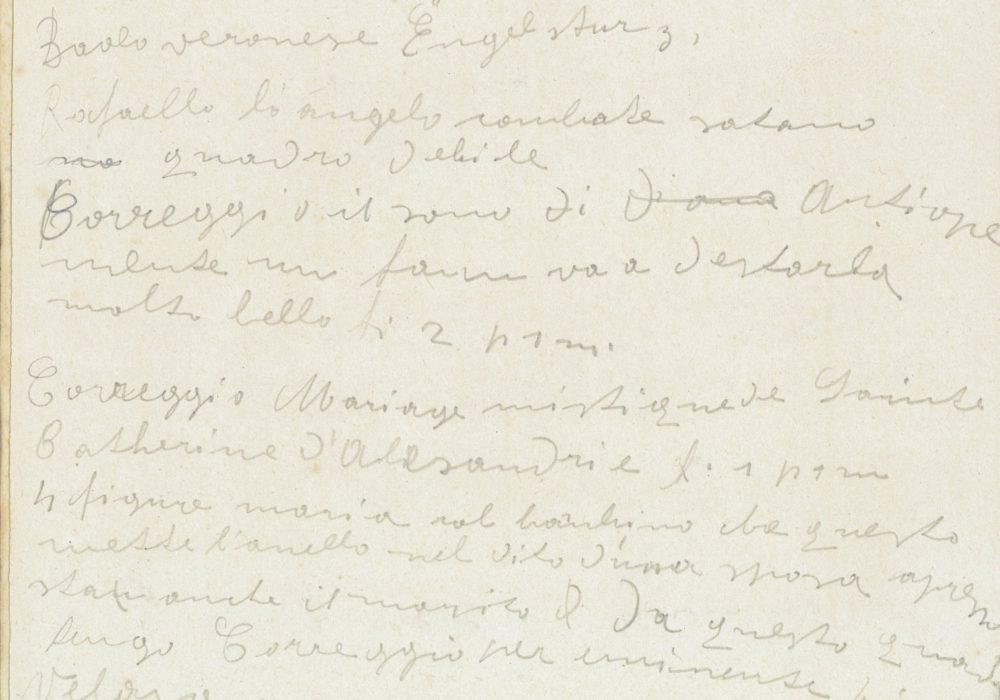 Paolo veronese Engelsturz,
Rafaello l'angelo combate satano
no quadro debile
Correggio il sono di Diana Antiope
mente un faun va a destarla
molto bello fi 2 p 1 m.
Correggio Mariage mistique de Sainte
Catherine d'Alesandrie l. 1 p 1 m
4 figure maria col bambino che questo
mette l'anello nel dito d'una sposa apresso
stan anche il marito Da questo quadro
tengo Correggio per eminente